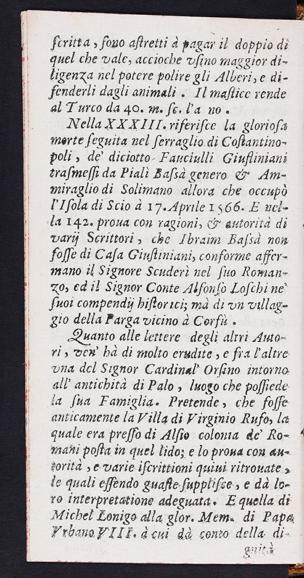 scritta, sono astretti à pagar il doppio di
quel che vale, accioche vsino maggior di-
ligenza nel potere polire gli Alberi, e di-
fenderli dagli animali. Il mastice rende
al Turco da 40. m. sc. l'a no.
Nella XXXIII. riferisce la gloriosa
morte seguita nel serraglio di Costantino-
poli, de' diciotto Fanciulli Giustiniani
trasmessi da Pialì Bassà genero & Am-
miraglio di Solimano allora che occupò
l'Isola di Scio à 17. Aprile 1566. E nel-
la 142. proua con ragioni, & autorità di
varij Scrittori, che Ibraim Bassà non
fosse di Casa Giustiniani, conforme affer-
mano il Signore Scuderì nel suo Roman-
zo, ed il Signor Conte Alfonso Loschi ne'
suoi compendij historici; mà di vn villag-
gio della Parga vicino à Corfù.
Quanto alle lettere degli altri Auto-
ri, ven' hà di molto erudite, e fra l'altre
vna del Signor Cardinal' Orsino intorno
all' antichità di Palo, luogo che possiede
la sua Famiglia. Pretende, che fosse
anticamente la Villa di Virginio Rufo, la
quale era presso di Alsio colonia de' Ro-
mani posta in quel lido; e lo proua con au-
torità, e varie iscrittioni quiui ritrouate,
le quali essendo guaste supplisce, e dà lo-
ro interpretatione adeguata. E quella di
Michel Lonigo alla glor. Mem. di Papa
Vrbano VIII. à cui dà conto della di-
gnità